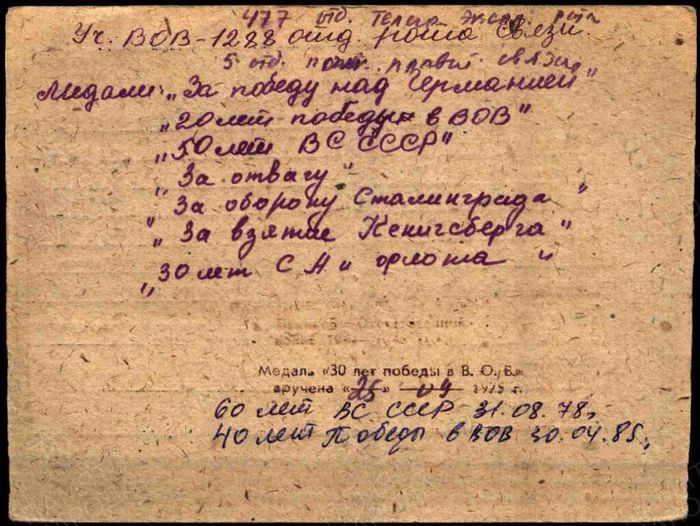 477 отд. телегр. экспл. рота
Уч. ВОВ-1288 отд. рота связи.
5 отд. полк правит. связи
Медали: „За победу над Германией"
„20 лет победы в ВОВ"
„50 лет ВС СССР"
„За отвагу"
„За оборону Сталинграда"
„За взятие Кенигсберга"
„30 лет СА и флота"
Медаль «30 лет победы в В. О. В.»
вручена «25» 04 1975 г.
60 лет ВС СССР 31.08.78г.
40 лет Победы в ВОВ 30.04.85г.